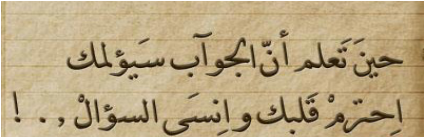 حينَ تَعلم أنّ الجوآب سَيؤلمك
اِحترمْ قَلبك و اِنسَى السؤالْ , . . !